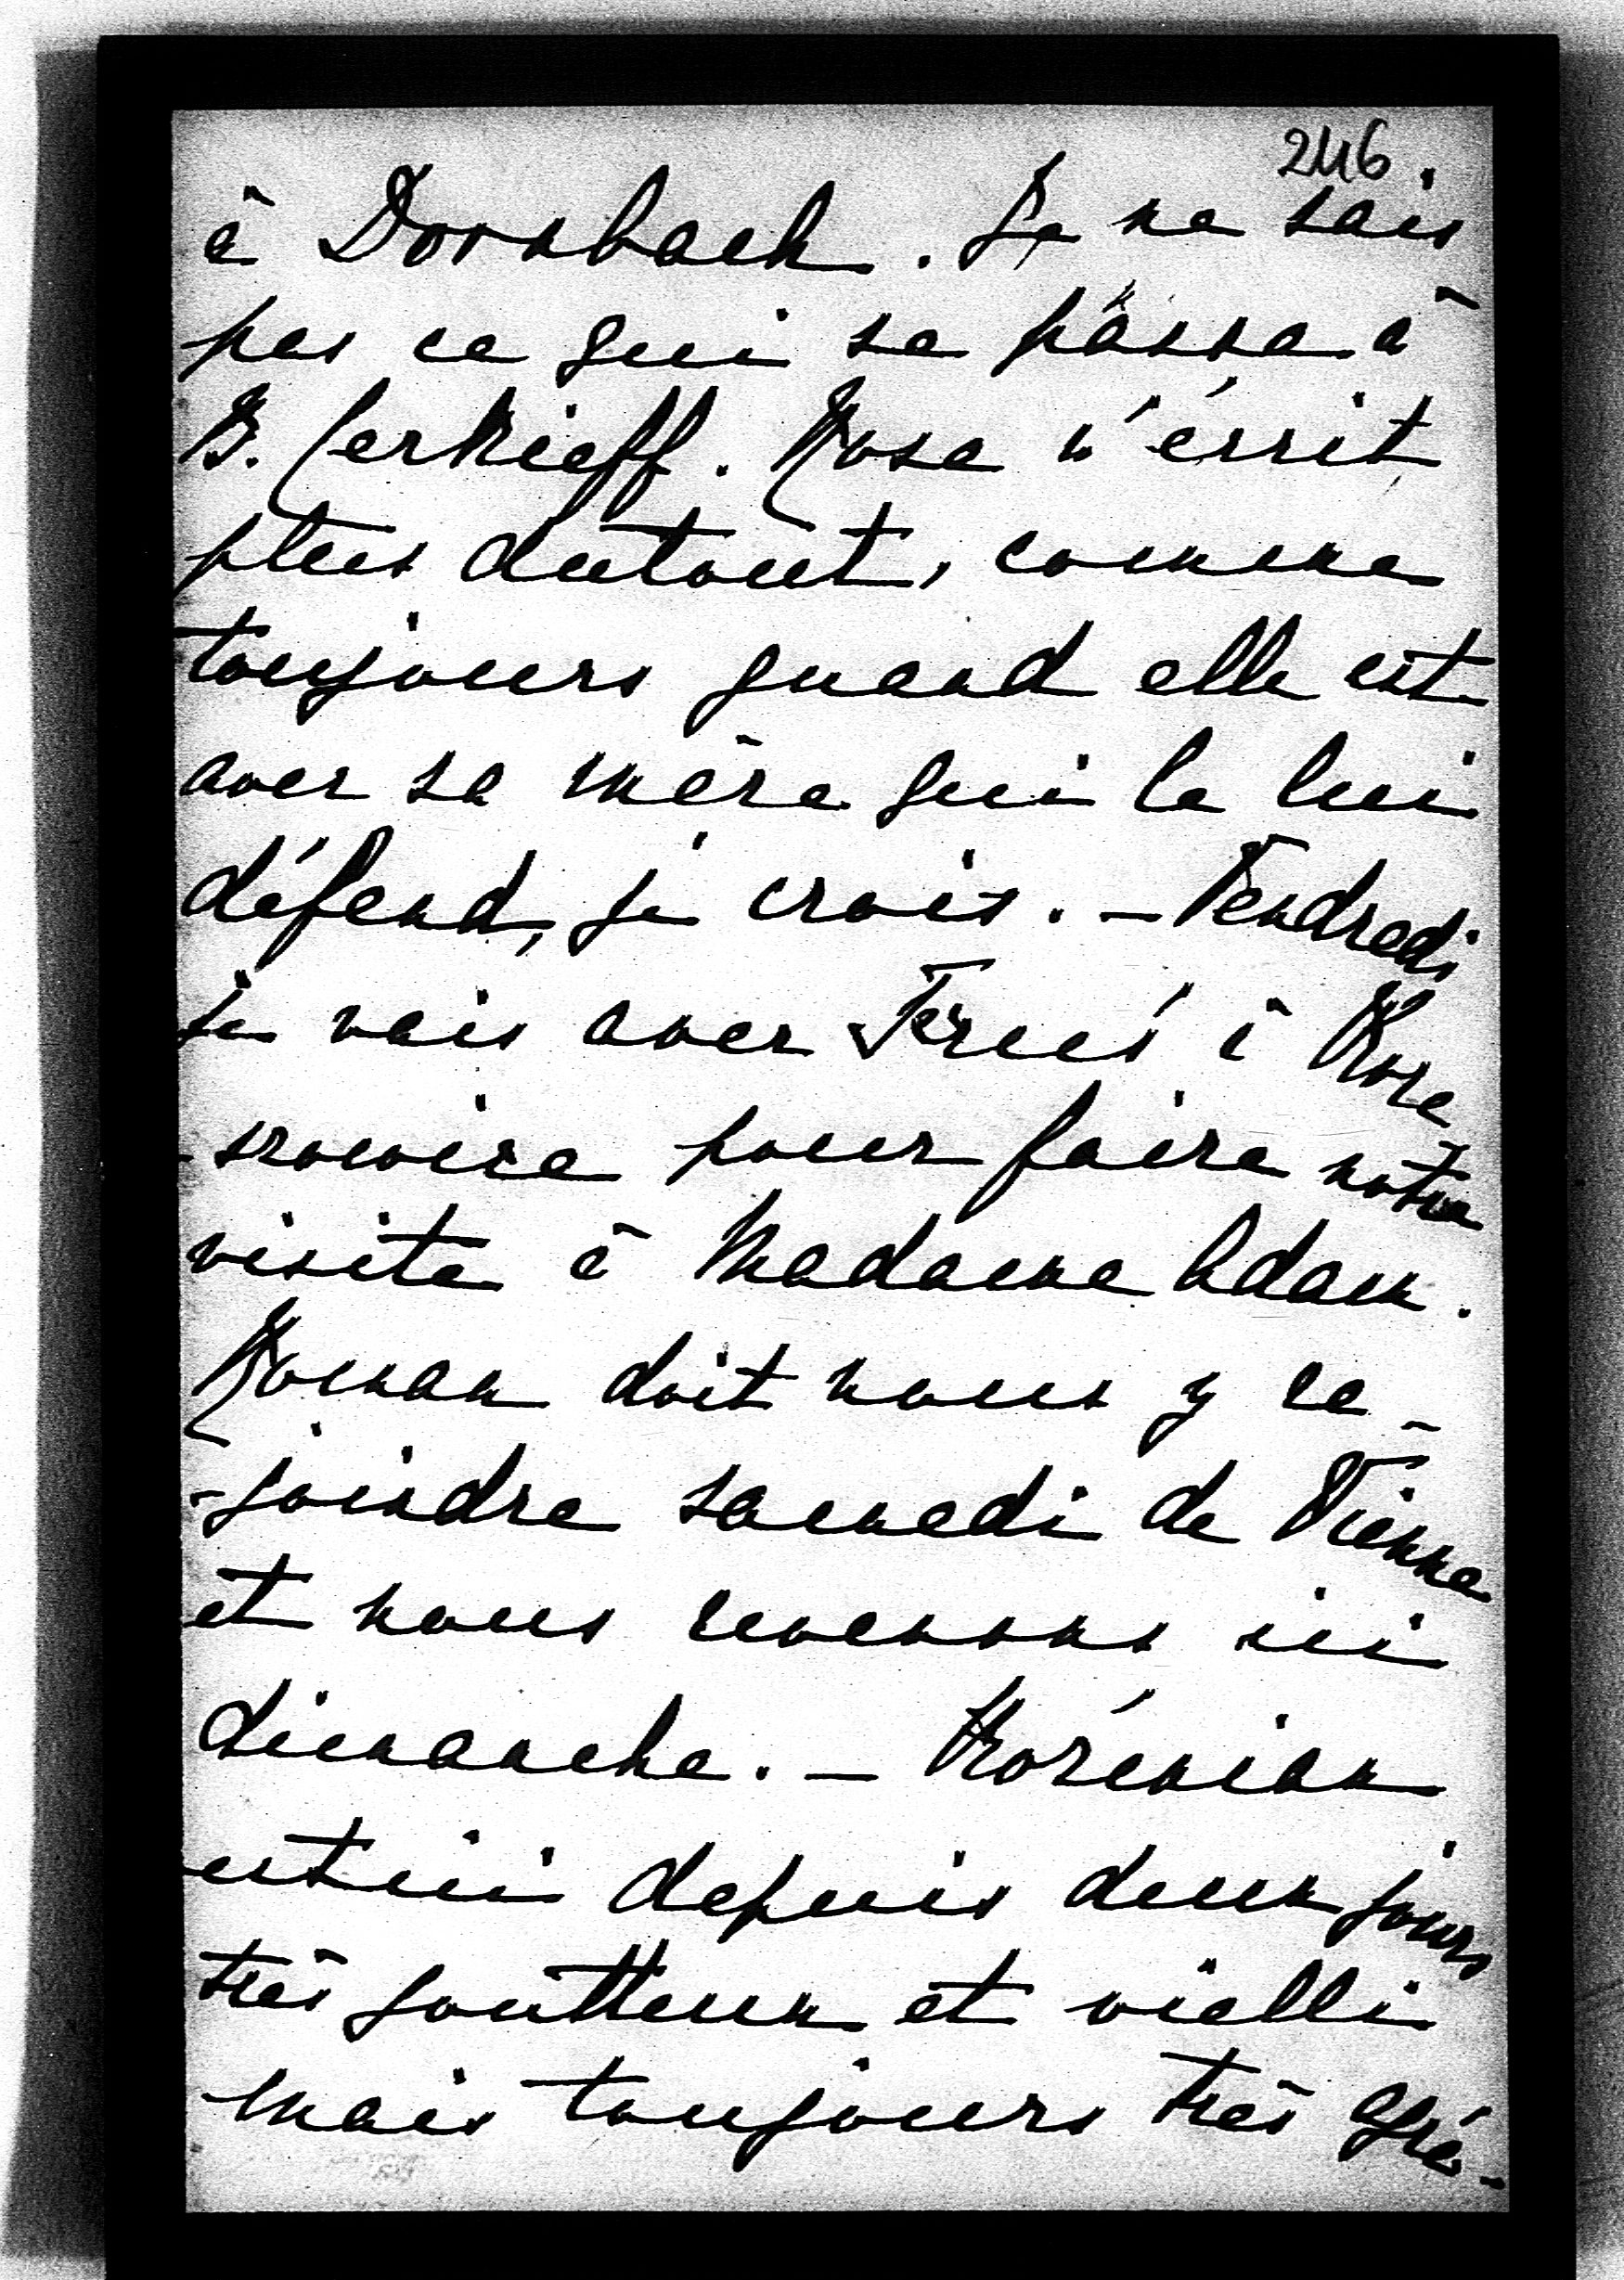 246.
à Dornbach. Je ne sais
pas ce qui se passe à
B. Cerkieff. Rose n'écrit
plus dutout, comme
toujours quand elle est
avec sa mère qui le lui
défend, je crois. – Vendredi
je vais avec à
pour faire notre
visite à Madame Adam.
Roman doit nous y re-
-joindre samedi de Vienne
et nous revenons ici
dimanche. –
est ici depuis deux jours
très goutteux et vielli
mais toujours très agré-